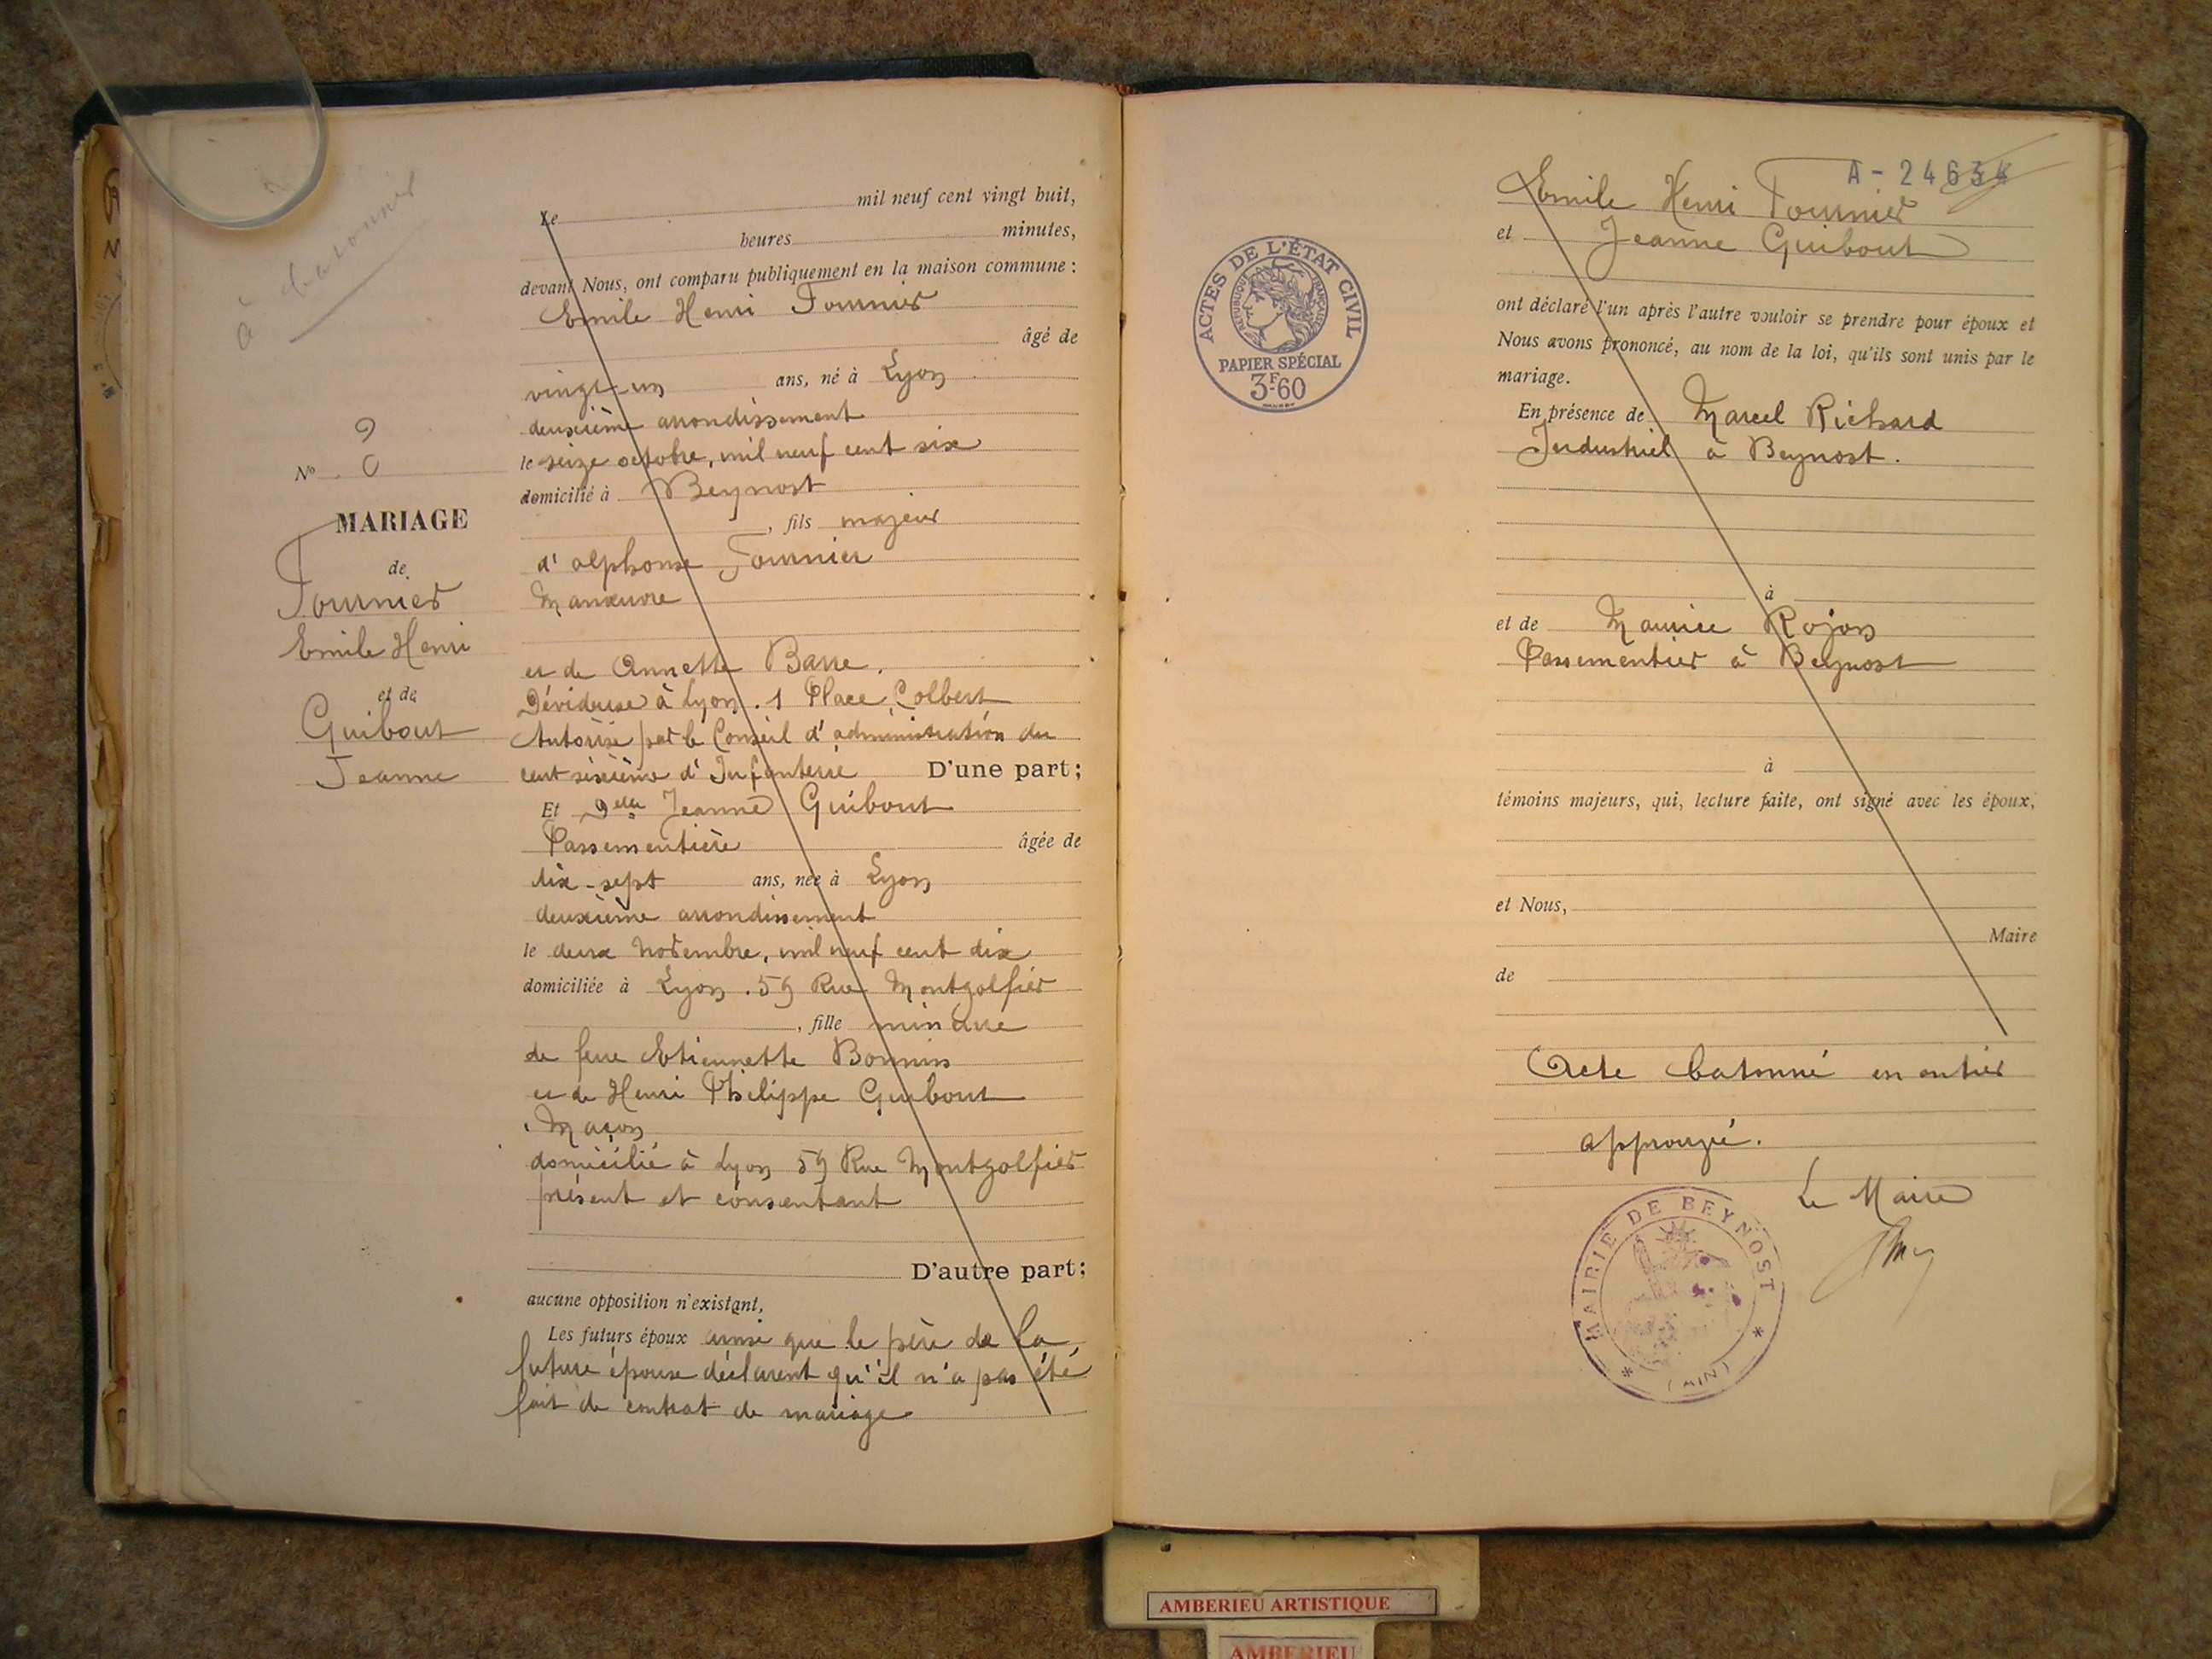 à batonner
Le mil neuf cent vingt huit,
heures minutes,
devant Nous, ont comparu publiquement en la maison commune :
Emile Henri Fournier
âgé de
vingt-un ans, né à Lyon
deuxième arrondissement
le seize octobre, mil neuf cent six
domicilié à Beynost
, fils majeur
d'alphonse Fournier
Manœuvre
et de Annette Barre.
Dévideuse à Lyon. 1 Place Colbert
Autorisé par le Conseil d'administration du
cent sixième d'Infanterie D'une part;
Et Delle Jeanne Guibout
Passementière âgée de
dix-sept ans, née à Lyon
deuxième arrondissement
le deux novembre, mil neuf cent dix
domiciliée à Lyon. 59 Rue Montgolfier
, fille mineure
de feue Etiennette Bonnin
et de Henri Philippe Guibout
Maçon
domicilié à Lyon 59 Rue Montgolfier
présent et consentant
D'autre part;
aucune opposition n'existant,
Les futurs époux ainsi que le père de la
future épouse déclarent qu'il n'a pas été
fait de contrat de mariage
No
MARIAGE
de
Fournier
Emile Henri
et de
Guibout
Jeanne
A-24634
Emile Henri Fournier
et Jeanne Guibout
ont déclaré l'un après l'autre vouloir se prendre pour époux et
Nous avons prononcé, au nom de la loi, qu'ils sont unis par le
mariage.
En présence de Marcel Richard
Industriel à Beynost.
à
et de Maurice Rojon
Passementier à Beynost
à
témoins majeurs, qui, lecture faite, ont signé avec les époux,
et Nous,
Maire
de
Acte batonné en entier
approuvé.
Le Maire
ACTES DE L'ÉTAT CIVIL
RÉPUBLIQUE FRANÇAISE
PAPIER SPÉCIAL
3F60
MAIRIE DE BEYNOST
* (AIN) *
AMBERIEU ARTISTIQUE
AMBERIEU